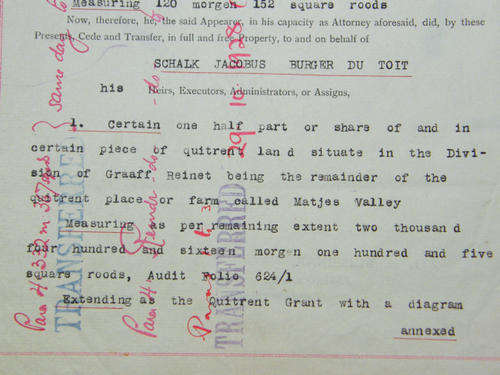 Measuring 120 morgen 152 square roods
Now, therefore, he, the said Appearer, in his capacity as Attorney aforesaid, did, by these
Presents, Cede and Transfer, in full and free Property, to and on behalf of
SCHALK JACOBUS BURGER DU TOIT
his Heirs, Executors, Administrators, or Assigns,
1. Certain one half part or share of and in
certain piece of quitrent land situate in the Divi-
sion of Graaff Reinet being the remainder of the
quitrent place or farm called Matjes Valley
Measuring as per remaining extent two thousand
four hundred and sixteen morgen one hundred and five
square roods, Audit Folio 624/1
Extending as the Quitrent Grant with a diagram
annexed
TRANSFERRED
TRANSFERRED
same day
Para 4
Para 4
29/10/1928